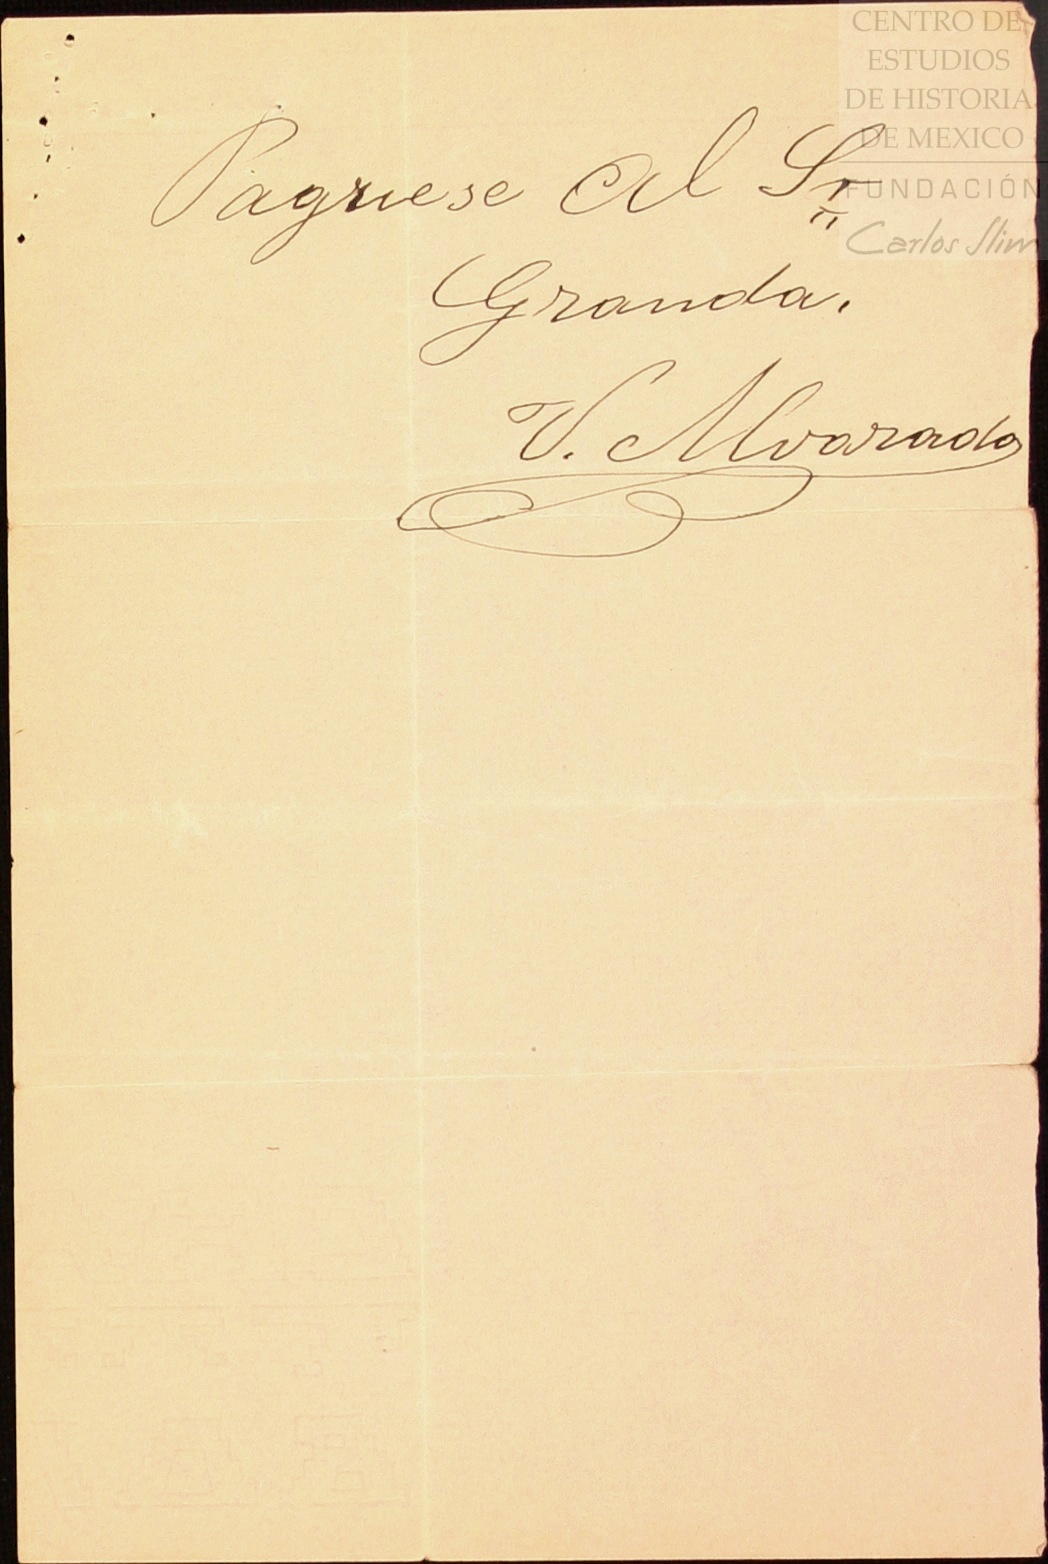 CENTRO DE
ESTUDIOS
DE HISTORIA
DE MEXICO
FUNDACIÓN
Carlos Slim
Paguese Al Sr
Granda.
V. Alvarado